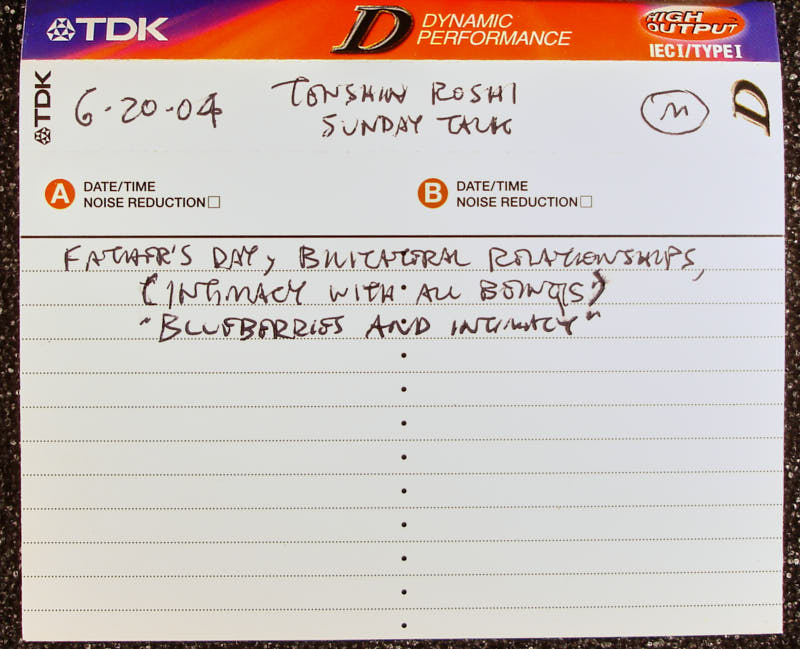 TDK
D
DYNAMIC
PERFORMANCE
HIGH
OUTPUT
IEC I/TYPE I
TDK
6-20-04
TENSHIN ROSHI
SUNDAY TALK
M
D
A DATE/TIME
NOISE REDUCTION
B DATE/TIME
NOISE REDUCTION
FATHER'S DAY, BILATERAL RELATIONSHIPS,
(INTIMACY WITH ALL BEINGS)
"BLUEBERRIES AND INTIMACY"